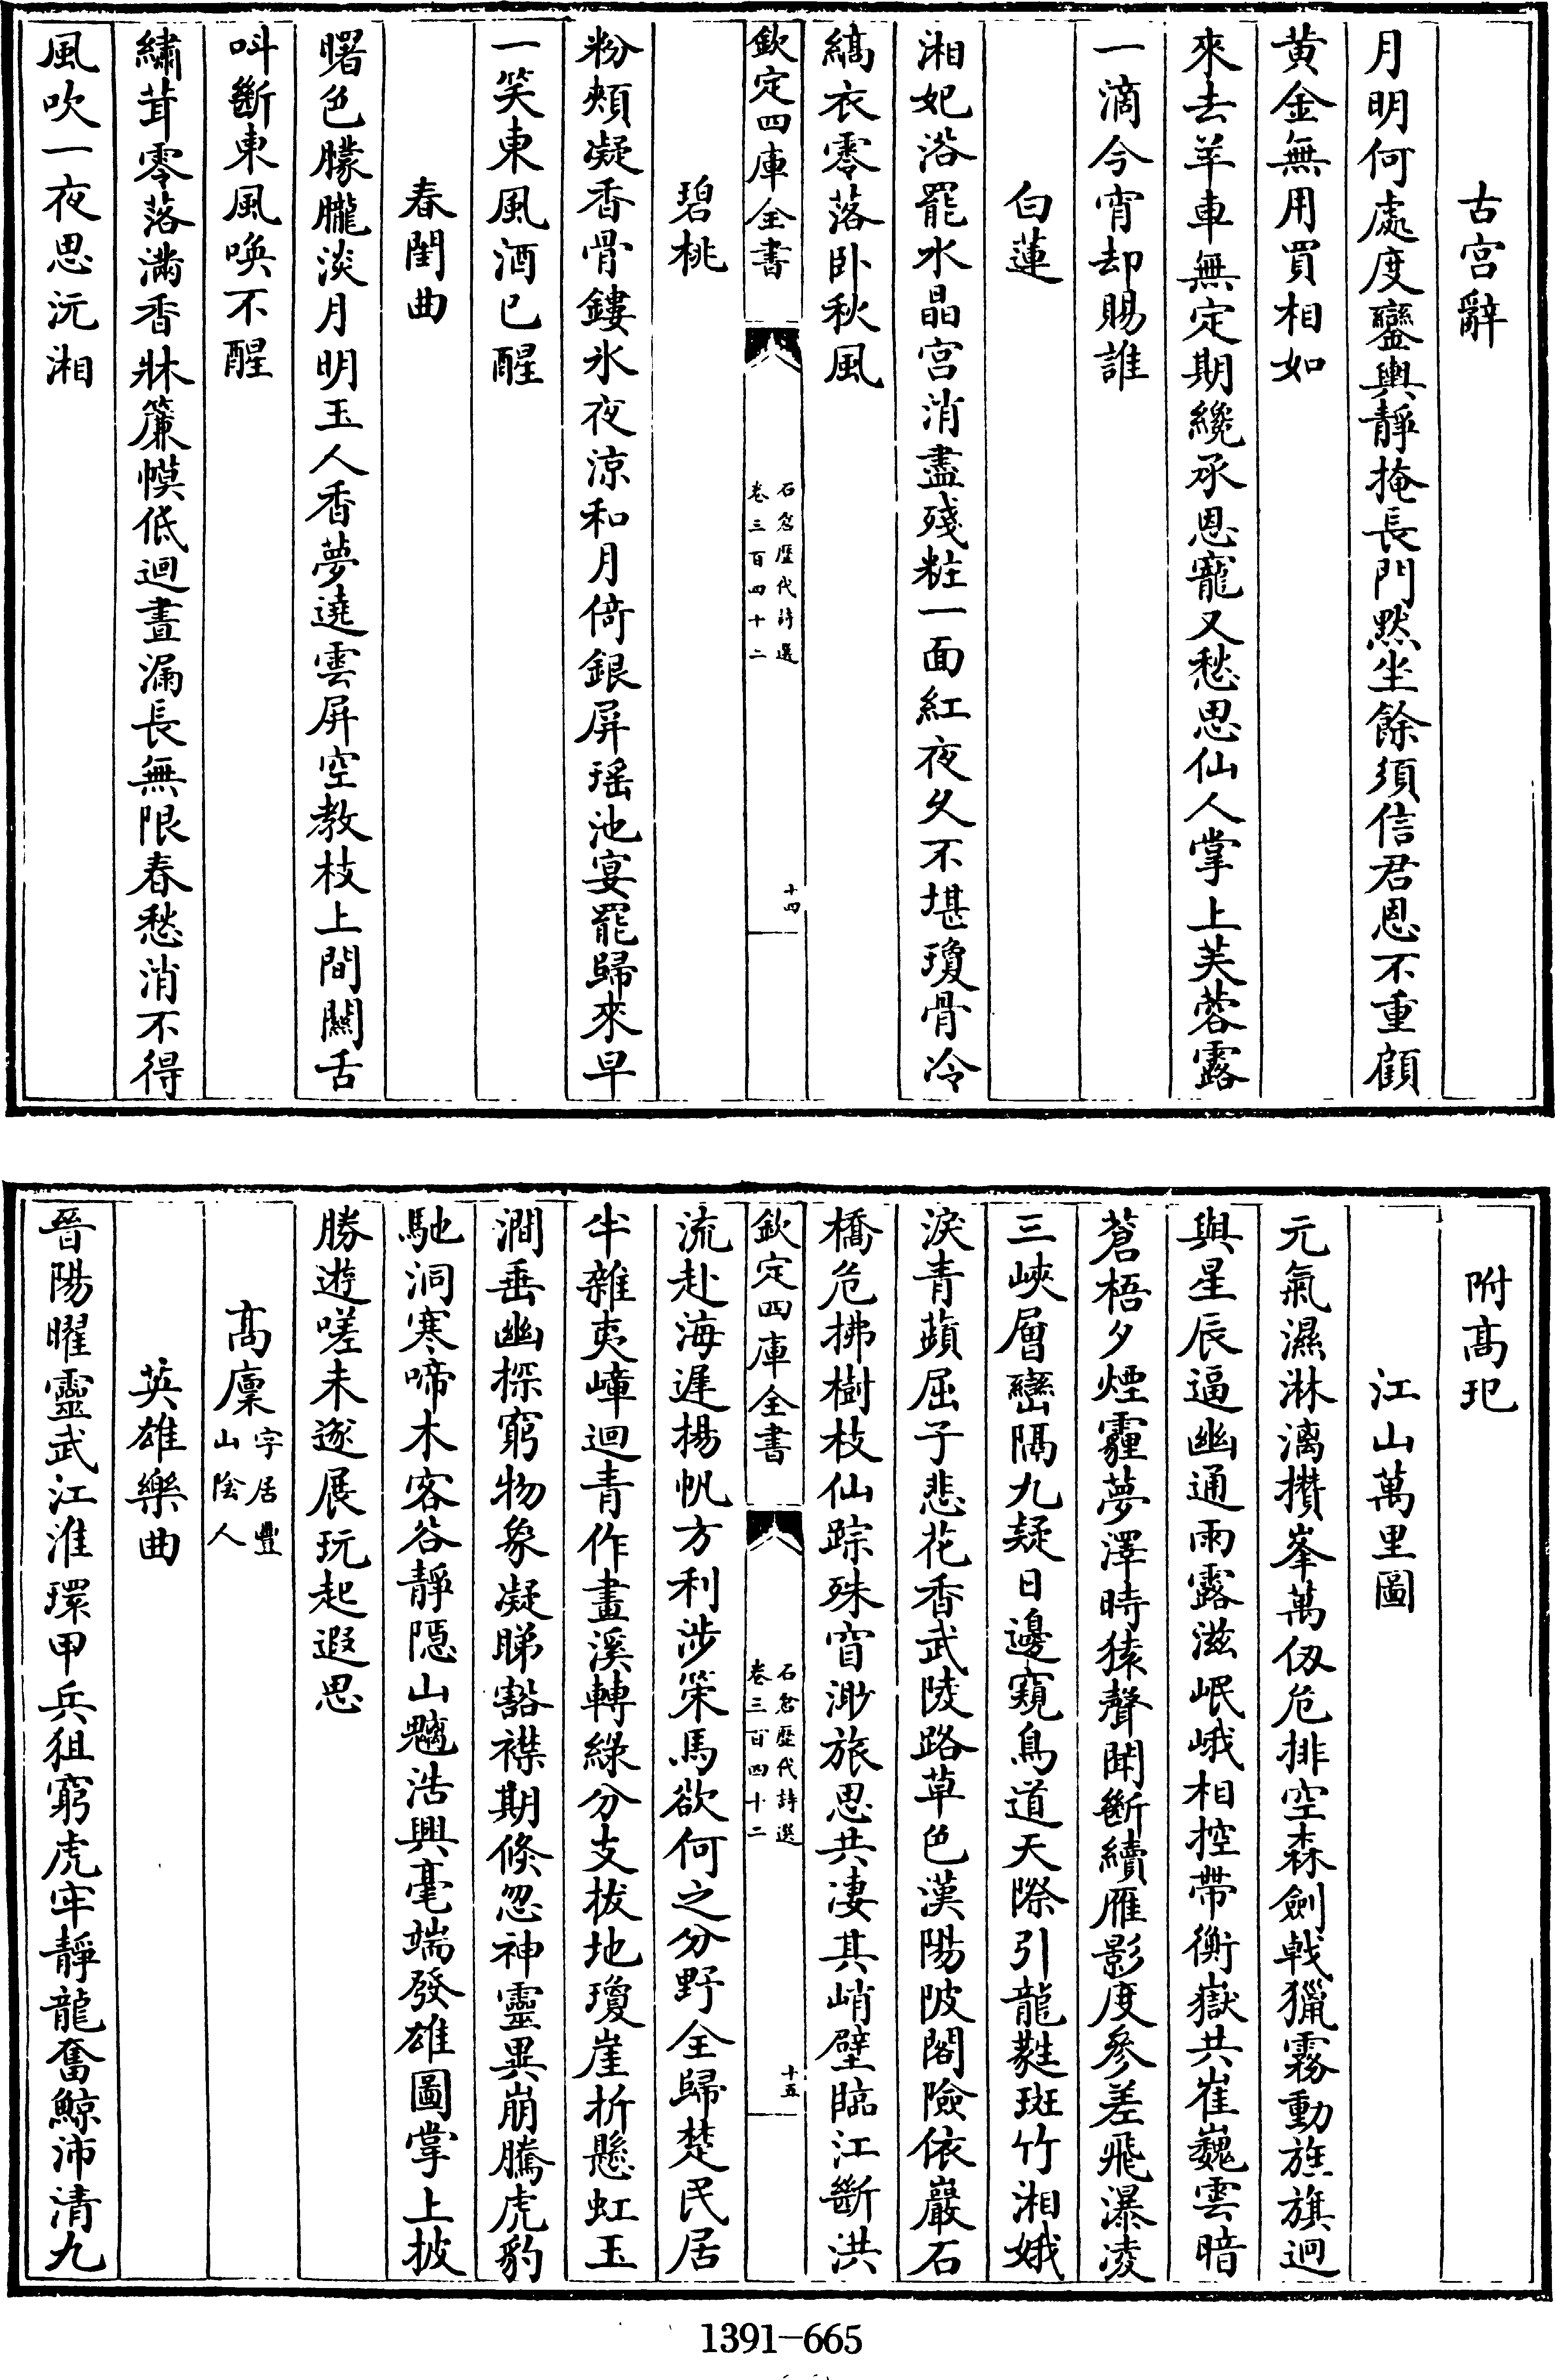 古宫辭
月明何處度鑾輿靜掩長門黙坐餘須信君恩不重顧
黄金無用買相如
來去羊車無定期纔承恩寵又愁思仙人掌上芙蓉露
一滴今宵却賜誰
白蓮
湘妃浴罷水晶宫消盡殘粧一面紅夜久不堪瓊骨冷
縞衣零落卧秋風
欽定四庫全書
石倉歷代詩選
卷三百四十二
十四
碧桃
粉頰凝香骨鏤氷夜涼和月倚銀屏瑶池宴罷歸來早
一笑東風酒已醒
春閨曲
曙色朦朧淡月明玉人香夢遶雲屏空教枝上間關舌
呌斷東風喚不醒
繡茸零落滿香牀簾幙低迴晝漏長無限春愁消不得
風吹一夜思沅湘
附髙玘
江山萬里圖
元氣濕淋漓攢峯萬仞危排空森劍㦸獵霧動旌旗迥
與星辰逼幽通雨露滋岷峨相控帶衡嶽共崔巍雲暗
蒼梧夕煙霾夢澤時猿聲聞斷續雁影度參差飛瀑凌
三峽層巒隔九疑日邊窺鳥道天際引龍㲝斑竹湘娥
淚青蘋屈子悲花香武陵路草色漢陽陂閣險依巖石
橋危拂樹枝仙踪殊窅渺旅思共凄其峭壁臨江斷洪
欽定四庫全書
石倉歷代詩選
卷三百四十二
十五
流赴海遲揚帆方利涉策馬欲何之分野全歸楚民居
半雜夷嶂迴青作畫溪轉綠分支拔地瓊崖折懸虹玉
澗垂幽探窮物象凝睇豁襟期倐忽神靈異崩騰虎豹
馳洞寒啼木客谷靜隠山魑浩興毫端發雄圖掌上披
勝遊嗟未遂展玩起遐思
髙廩字居豐山隂人
英雄樂曲
晉陽曜靈武江淮環甲兵狙窮虎牢靜龍奮鯨沛清九
1391-665